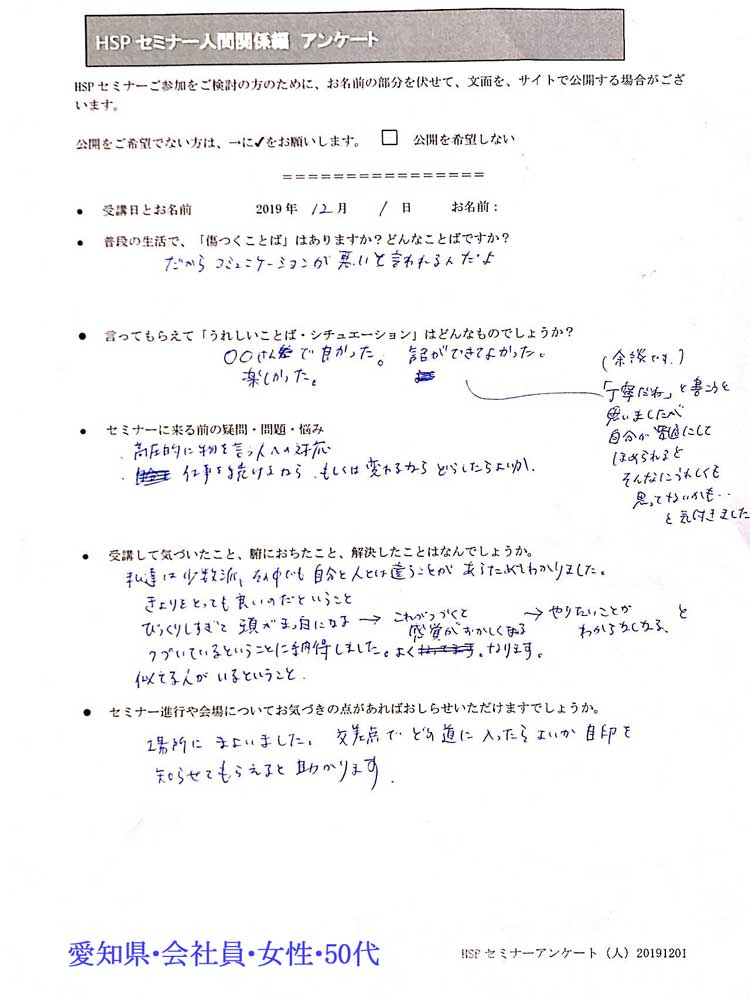 HSP セミナー人間関係編 アンケート
HSP セミナーご参加をご検討の方のために、お名前の部分を伏せて、文面を、サイトで公開する場合がござ
います。
公開をご希望でない方は、→に✔をお願いします。 □ 公開を希望しない
================
• 受講日とお名前 2019 年 12 月 1 日 お名前：
• 普段の生活で、「傷つくことば」はありますか？どんなことばですか？
だから コミュニケーションが 悪いと言われるんだよ
• 言ってもらえて「うれしいことば・シチュエーション」はどんなものでしょうか？
〇〇さんで良かった。 話ができてよかった。
楽しかった。
(余談です。)
「丁寧だね」と書こうと
思いましたが
自分が 普通にして
ほめられると
そんなにうれしくも
思ってないかも‥
と気付きました
• セミナーに来る前の疑問・問題・悩み
・高圧的に物を言う人への対応
・仕事を続けるなら、もしくは変わるなら どうしたらよいか.
• 受講して気づいたこと、腑におちたこと、解決したことはなんでしょうか。
私達は少数派、その中でも自分と人とは違うことが あらためてわかりました。
きょりをとっても良いのだということ
びっくりしすぎて 頭がまっ白になる → これがつづくと 感覚がおかしくなる → やりたいことが わからなくなる、と
つづいているということに納得しました。よく なります。
似てる人が いるということ.
• セミナー進行や会場についてお気づきの点があればおしらせいただけますでしょうか。
場所に まよいました。 交差点で どの道に 入ったらよいか 目印を
知らせてもらえると 助かります.
愛知県・会社員・女性・50代
HSP セミナーアンケート（人）20191201